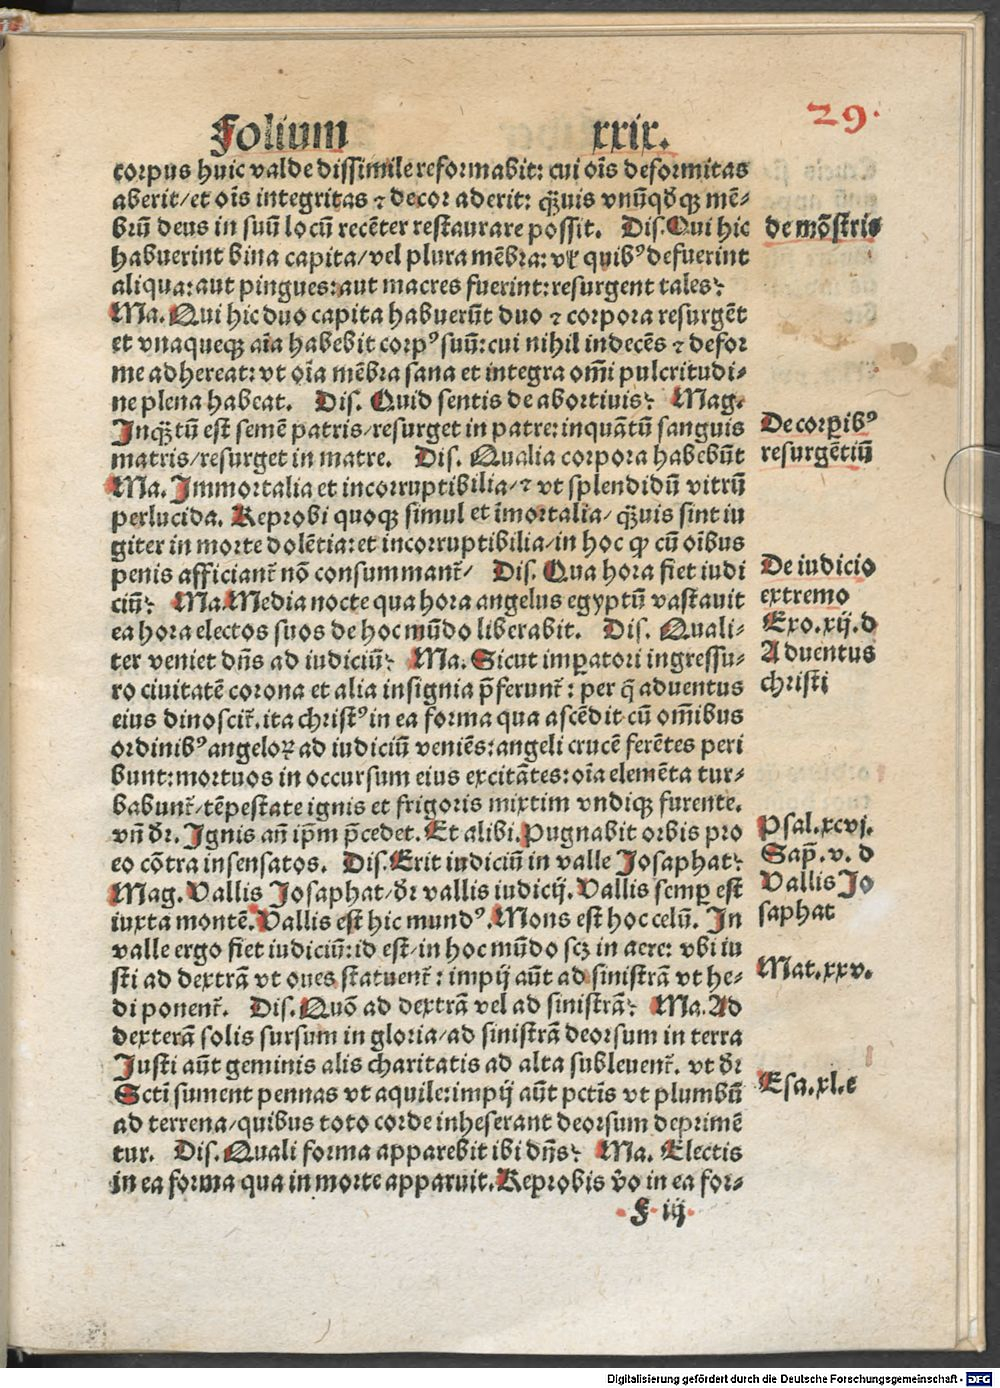 29.
Folium xxix.
corpus huic valde dissimile reformabit: cui oĩs deformitas
aberit/et oĩs integritas ⁊ decor aderit: q̃uis vnũqďqꝫ mẽ-
brũ deus in suũ locũ recẽter restaurare possit. Dis. Qui hic
habuerint bina capita/vel plura mẽbra: vĺ quibꝰ defuerint
aliqua: aut pingues: aut macres fuerint: resurgent tales?
Ma. Qui hic duo capita habuerũt duo ⁊ corpora resurgẽt
et vnaqueqꝫ aĩa habebit corpꝰ suũ: cui nihil indecẽs ⁊ defor
me adhereat: vt oĩa mẽbra sana et integra om̃i pulcritudi-
ne plena habeat. Dis. Quid sentis de abortiuis? Mag.
Inq̃tũ est semẽ patris/resurget in patre: inquãtũ sanguis
matris/resurget in matre. Dis. Qualia corpora habebũt
Ma. Immortalia et incorruptibilia/⁊ vt splendidũ vitrũ
perlucida. Reprobi quoqꝫ simul et ĩmortalia/q̃uis sint iu
giter in morte dolẽtia: et incorruptibilia/in hoc ꝙ cũ oĩbus
penis afficianť nõ consummanť/ Dis. Qua hora fiet iudi
ciũ? Ma. Media nocte qua hora angelus egyptũ vastauit
ea hora electos suos de hoc mũdo liberabit. Dis. Quali-
ter veniet dñs ad iudiciũ? Ma. Sicut imꝑatori ingressu-
ro ciuitatẽ corona et alia insignia p̃ferunť: per q̃ aduentus
eius dinosciť. ita christꝰ in ea forma qua ascẽdit cũ om̃ibus
ordinibꝰ angeloꝝ ad iudiciũ veniẽs: angeli crucẽ ferẽtes peri
bunt: mortuos in occursum eius excitãtes: oĩa elemẽta tur-
babunť/tẽpestate ignis et frigoris mixtim vndiqꝫ furente.
vñ ďr. Ignis añ ip̃m p̃cedet. Et alibi. Pugnabit orbis pro
eo cõtra insensatos. Dis. Erit iudiciũ in valle Josaphat?
Mag. Vallis Josaphat/ďr vallis iudicij. Vallis semꝑ est
iuxta montẽ. Vallis est hic mundꝰ. Mons est hoc celũ. In
valle ergo fiet iudiciũ: id est/in hoc mũdo scꝫ in aere: vbi iu
sti ad dextrã vt oues statuenť: impij aũt ad sinistrã vt he-
di ponenť. Dis. Quõ ad dextrã vel ad sinistrã? Ma. Ad
dexterã solis sursum in gloria/ad sinistrã deorsum in terra
Justi aũt geminis alis charitatis ad alta subleuenť. vt ďr
Scti sument pennas vt aquile: impij aũt pctĩs vt plumbũ
ad terrena/quibus toto corde inheserant deorsum deprimẽ
tur. Dis. Quali forma apparebit ibi dñs? Ma. Electis
in ea forma qua in morte apparuit. Reprobis ṽo in ea for-
F iij
de mõstris
De corꝑibꝰ
resurgẽtiũ
De iudicio
extremo
Exo. xij. d
Aduentus
christi
Psal. xcvj.
Sap̃. v. d
Vallis Jo
saphat
Mat. xxv.
Esa. xl. e
Digitalisierung gefördert durch die Deutsche Forschungsgemeinschaft - DFG